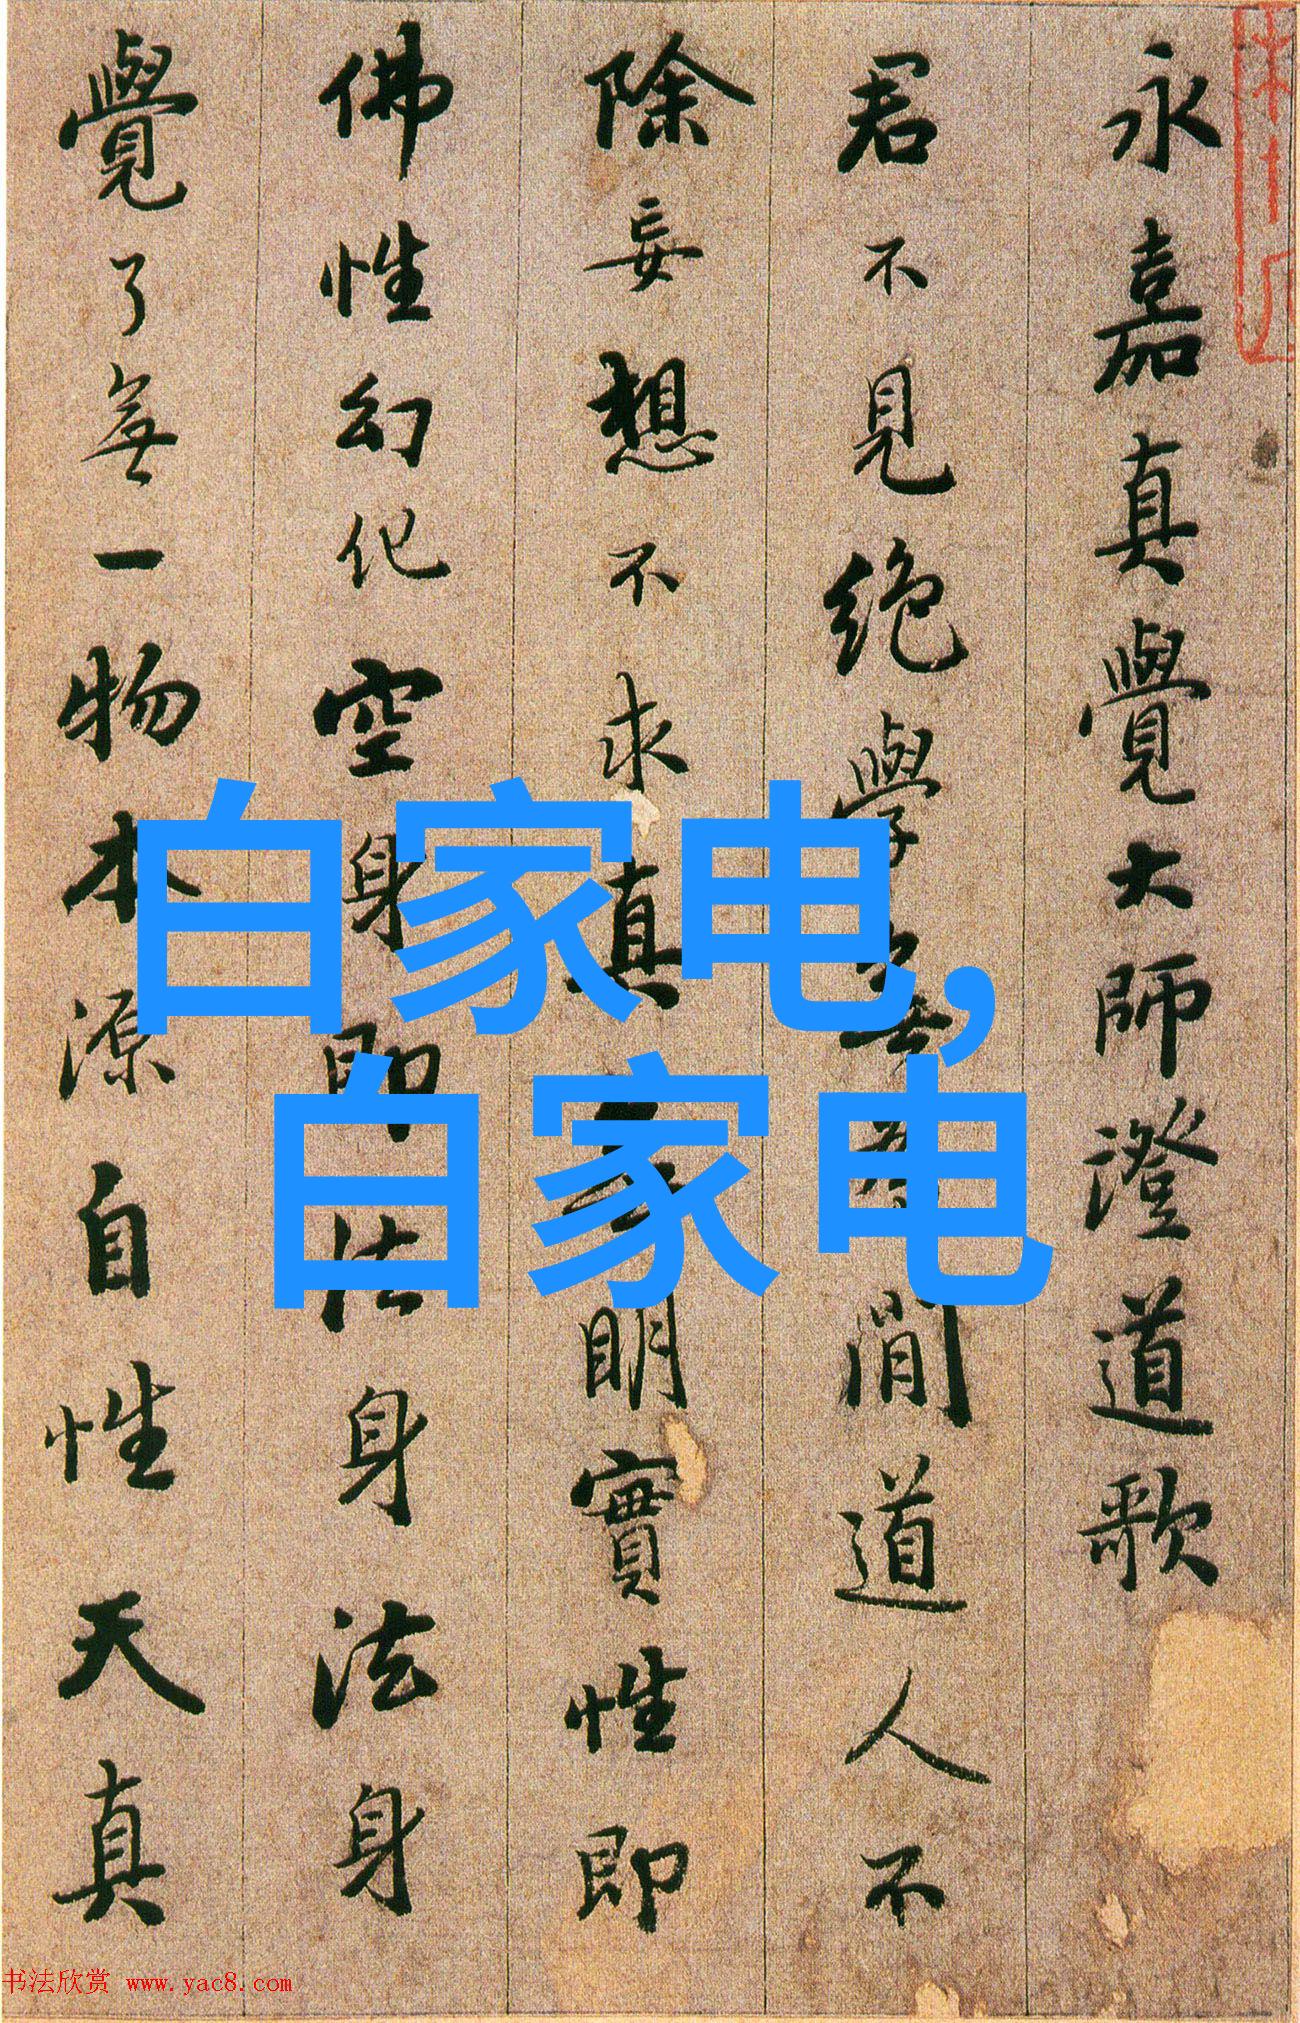 永嘉真覺大師澄道歌
君不見絶學無為閒道人不
除妄想不求真無明實性即
佛性幻化空身即法身法身
覺了無一物本源自性天真
白家电,
白家电
书法欣赏 www.yac8.com